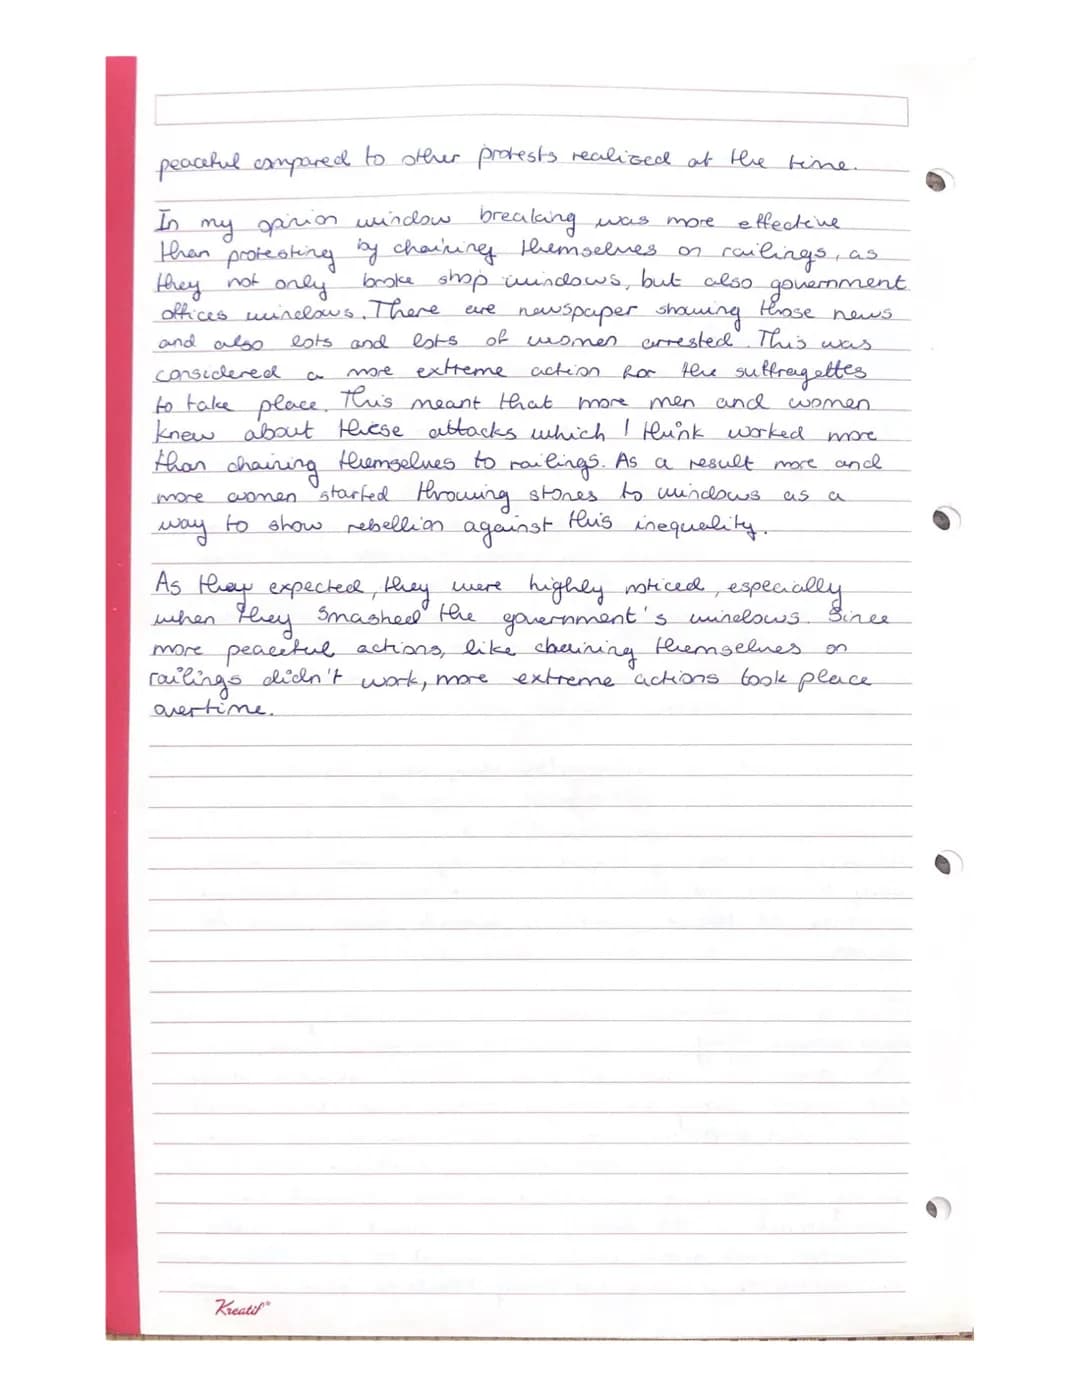 peaceful compared to other protests realized at the time.
In my opinion window breaking was more effective
than protesting by chaining themselves on railings, as
they not only broke shop windows, but also government
offices windows. There are newspaper showing those news
and also lots and lots of women arrested. This was
considered a more extreme action for the suffragettes
to take place. This meant that more men and women
knew about these attacks which I think worked more
than chaining themselves to railings. As a result more and
more women started throwing stones to windows as a
way to show rebellion against this inequality.
As they expected, they were highly noticed, especially
when they smashed the government's windows. Since
more peaceful actions, like chaining themselves on
railings didn't work, more extreme actions took place
overtime.
Kreatif®